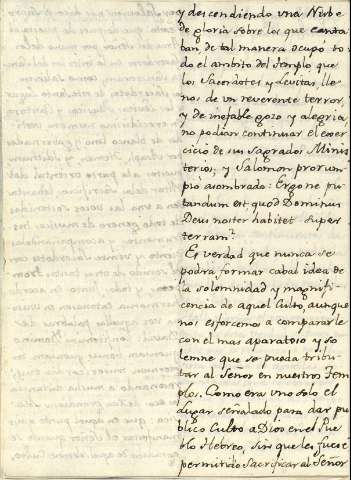 y descendiendo una Nube
de gloria sobre los que canta
ban, de tal manera ocupó to
do el ambito del Templo que
los Sacerdotes y Levitas, lle
nos de un reverente terror,
y de inefable gozo y alegria,
no podian continuar el exer
cicio de sus sagrados Minis
terios, y Salomon prorum
pió asombrado: Ergo ne pu
tandum est quod Dominus
Deus noster habitet super
terram?
Es verdad que nunca se
podra formar cabal idea de
la solemnidad y magnifi
cencia de aquel Culto, aunque
nos esforcemos a compararle
con el mas aparatoso y so
lemne que se pueda tribu
tar al Señor en nuestros Tem
plos. Como era uno solo el
Lugar señalado para dar pu
blico Culto a Dios en el Pue
blo Hebreo, sin que les fuese
permitido Sacrificar al Señor